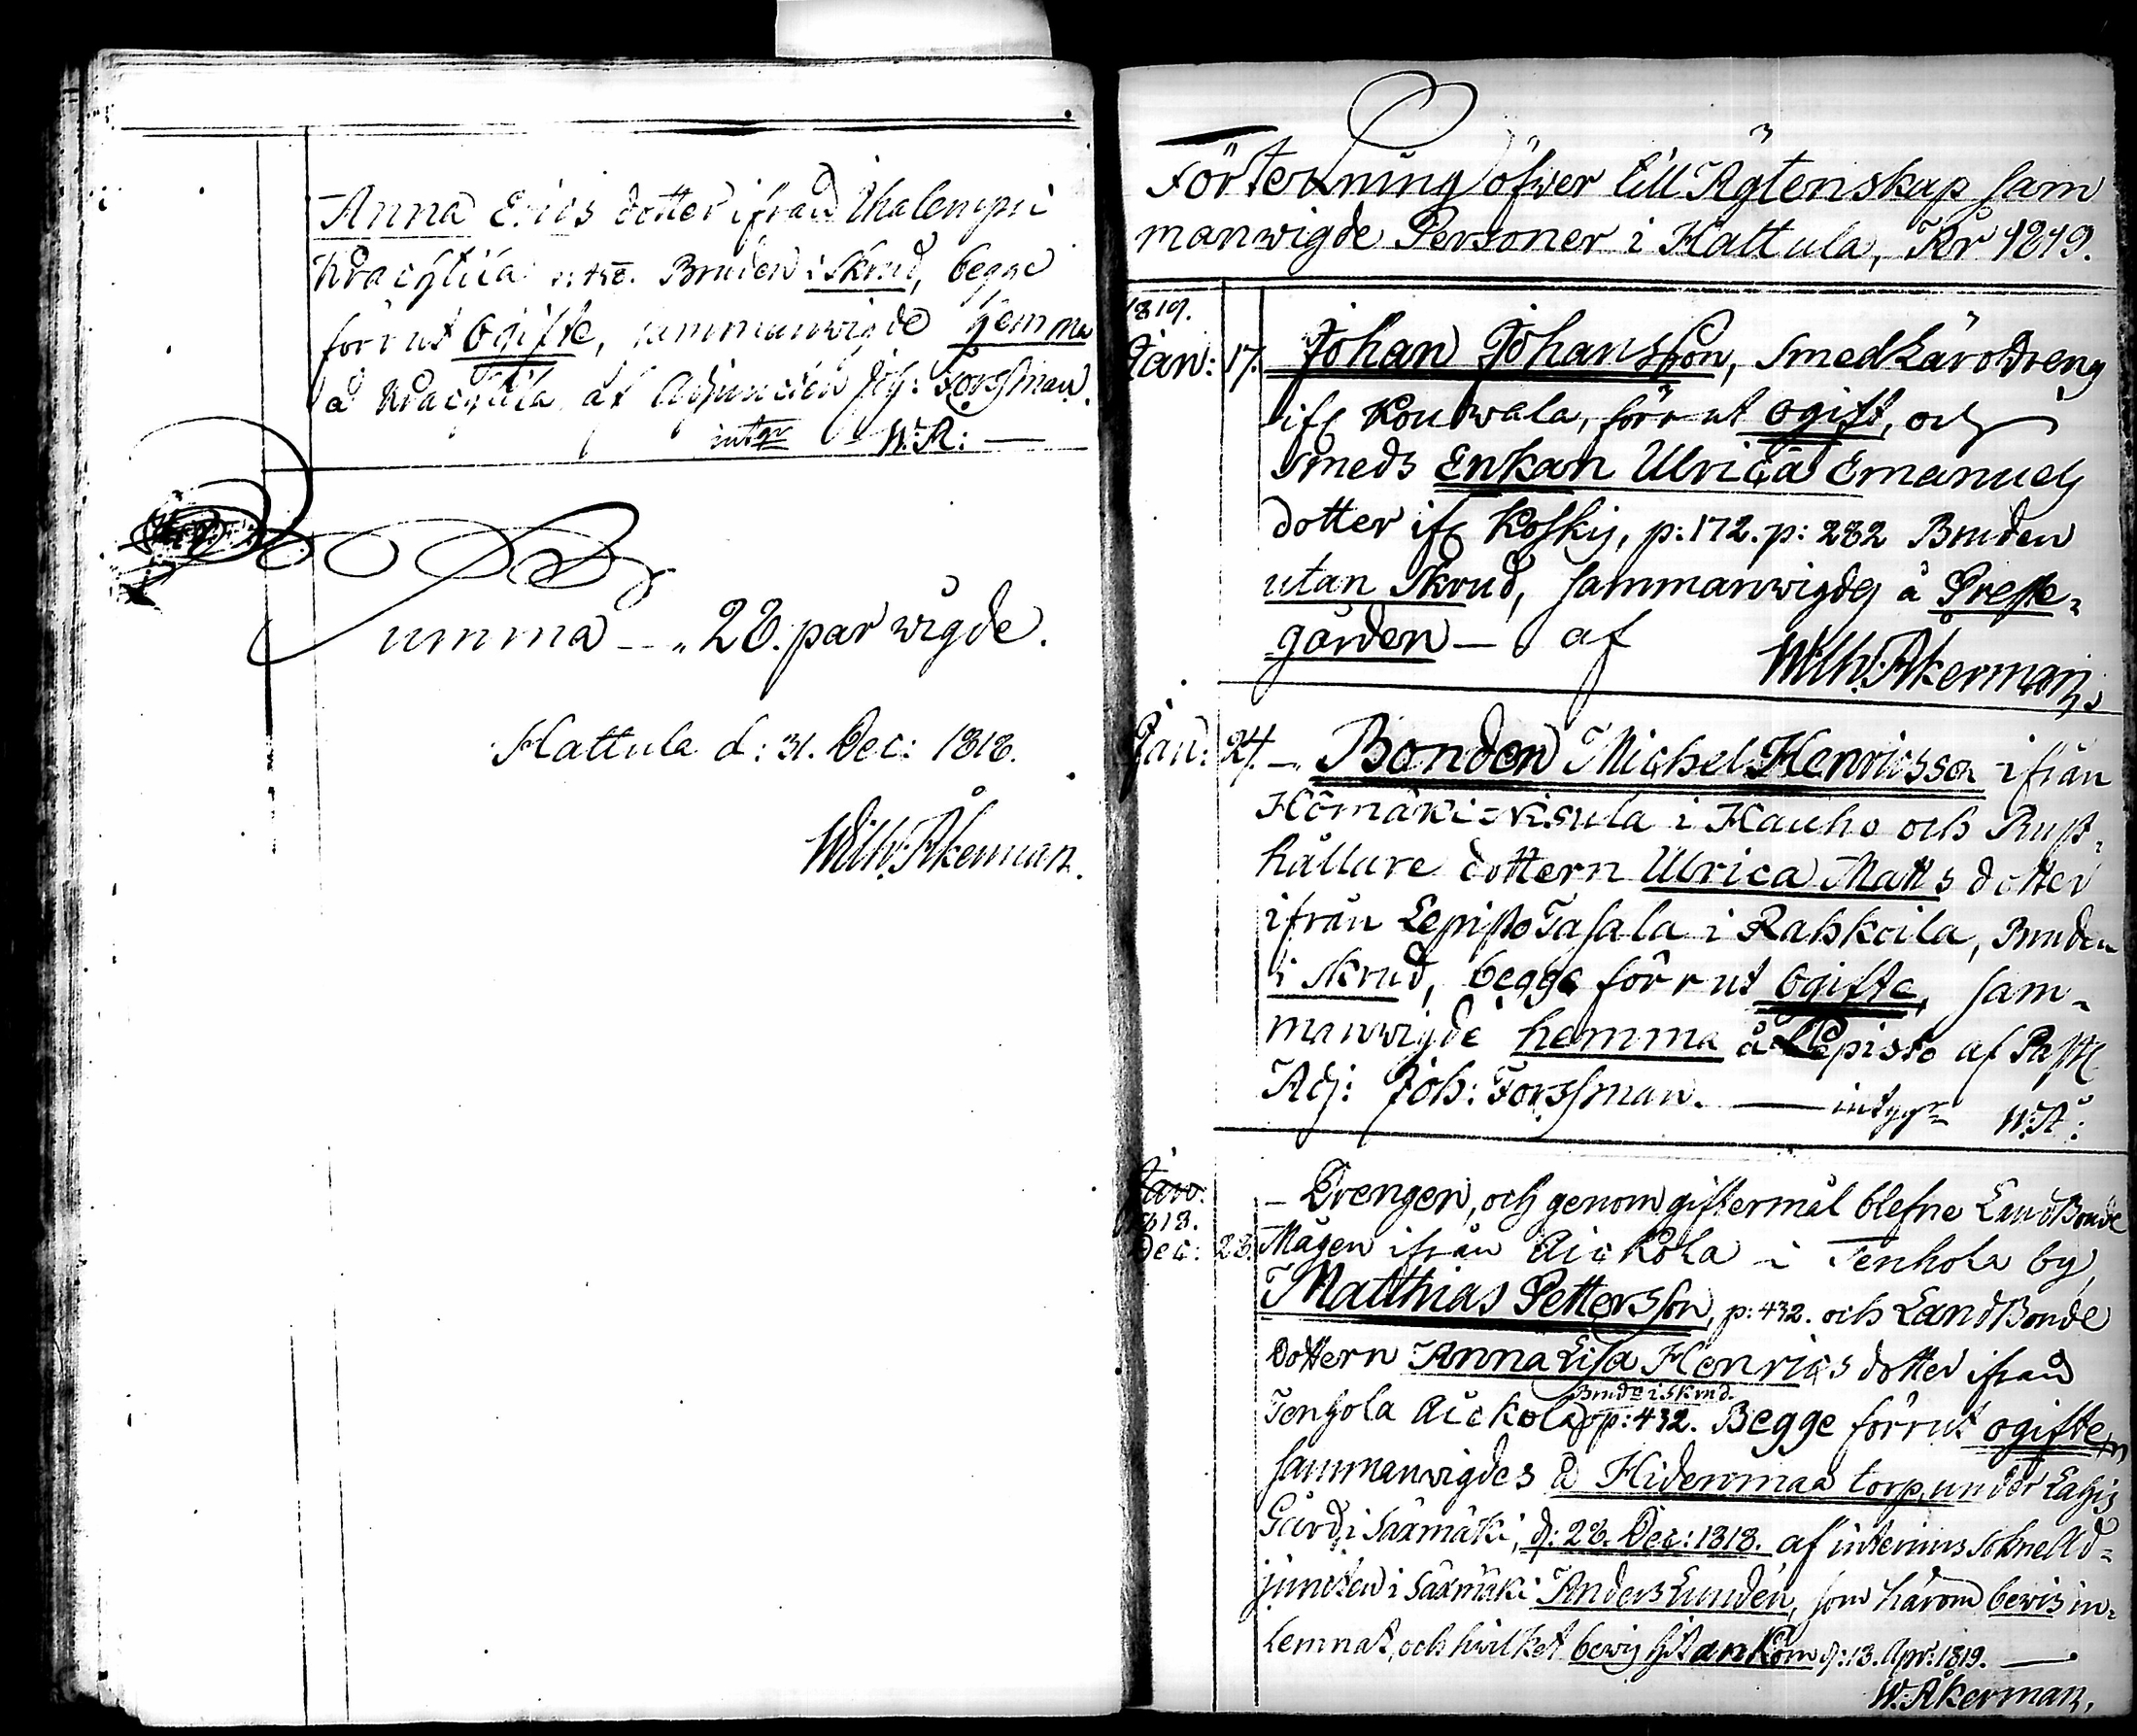 Anna Erics dotter ifrån
p: 450. Bruden i Skrud, begge
förrut Ogifte, sammanwigde hemma
å af Adjuncten Joh: Forssman.
intgr W.Å:
Summa — „ 28. par wigde.
Hattula d: 31. Dec: 1818.
Wilh: Åkerman.
Förtekning öfwer till Ägtenskap sam
manwigde Personer i Hattula, År 1819.
1819.
Jan: 17. Johan Johansson, Smed Läro Dreng
ifr Kouwala, förrut ogift, och
Smeds Enkan Ulrica Emanuels
dotter ifr Koskis, p: 172. p: 282 Bruden
utan Skrud, sammanwigdes å Preste-
gården — af Wilh: Åkerman.
Jan: 24. — Bonden Michel Henricsson ifrån
i Hauho och Rust-
hållare dottern Ulrica Matts dotter
ifrån Lepistö Tasala i Rahkoila, Bruden
i Skrud, begge förrut ogifte, sam-
manwigde hemma å Lepistö af Past:
Adj: Joh: Forssman. — intygr W:Å:
Jan:
1818.
Dec: 28. — Drengen, och genom giftermål blefne LandBonde
Mågen ifrån Aickola i Tenhola by,
Matthias Pettersson, p: 432. och LandBonde
dottern Anna Lisa Henrics dotter ifrån
Brudn i Skrud.
Tenhola Aickola, p: 432. Begge förrut ogifte,
sammanwigdes å Hidenmaa torp, under Lahis
Gård i Säxmäki, d: 28. Dec: 1818. af interims Sokne Ad-
juncten i Säxmäki Anders Lunden, som härom bewis in-
lemnat, och hwilket bewis hit ankom d: 13. Apr: 1819. —
W. Åkerman.